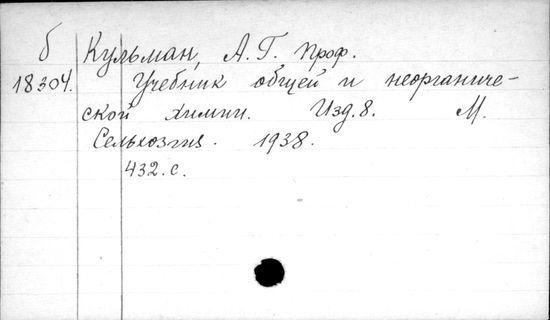 б Кульман, А. Г. проф.
18304. Учебник общей и неорганиче-
ской химии. Изд. 8. М.
Сельхозгиз. 1938.
432. с.